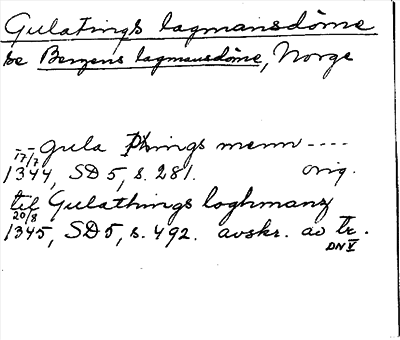 Gulatings lagmansdöme
se Bergens lagmansdöme, Norge
-- gula þings menn ----
17/7
1344, SD 5, s. 281. orig.
til Gulathings loghmanz
20/8
1345, SD 5, s. 492. avskr. av tr.
DN V